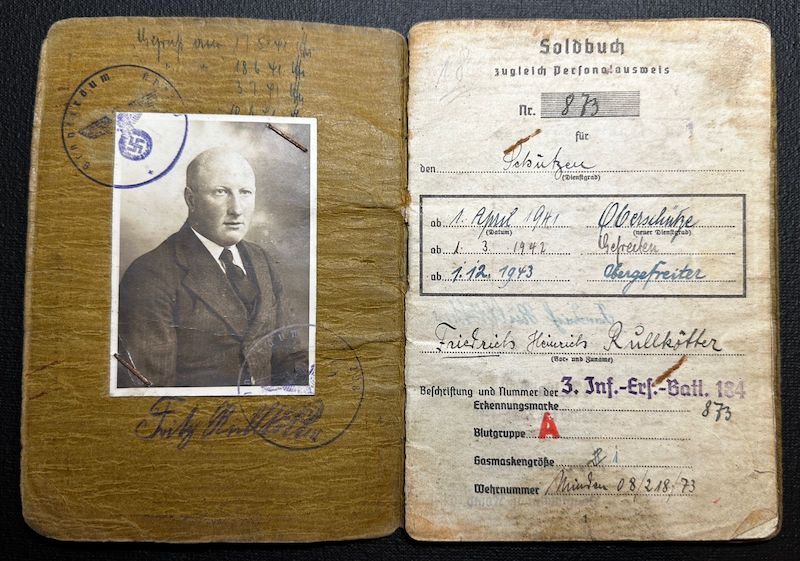 17.5.41
" " 18.6.41
3.7.41
Fritz Rullkötter
Soldbuch
zugleich Personalausweis
Nr. 873
für
den Schützen
(Dienstgrad)
ab 1. April 1941 Oberschütze
(Datum) (neuer Dienstgrad)
ab 1. 3. 1942 Gefreiten
ab 1.12.1943 Obergefreiter
Friedrich Heinrich Rullkötter
(Vor- und Zuname)
Beschriftung und Nummer der 3. Inf.-Ers.-Batl. 184
Erkennungsmarke 873
Blutgruppe A
Gasmaskengröße 1
Wehrnummer Minden 08/218/73
1